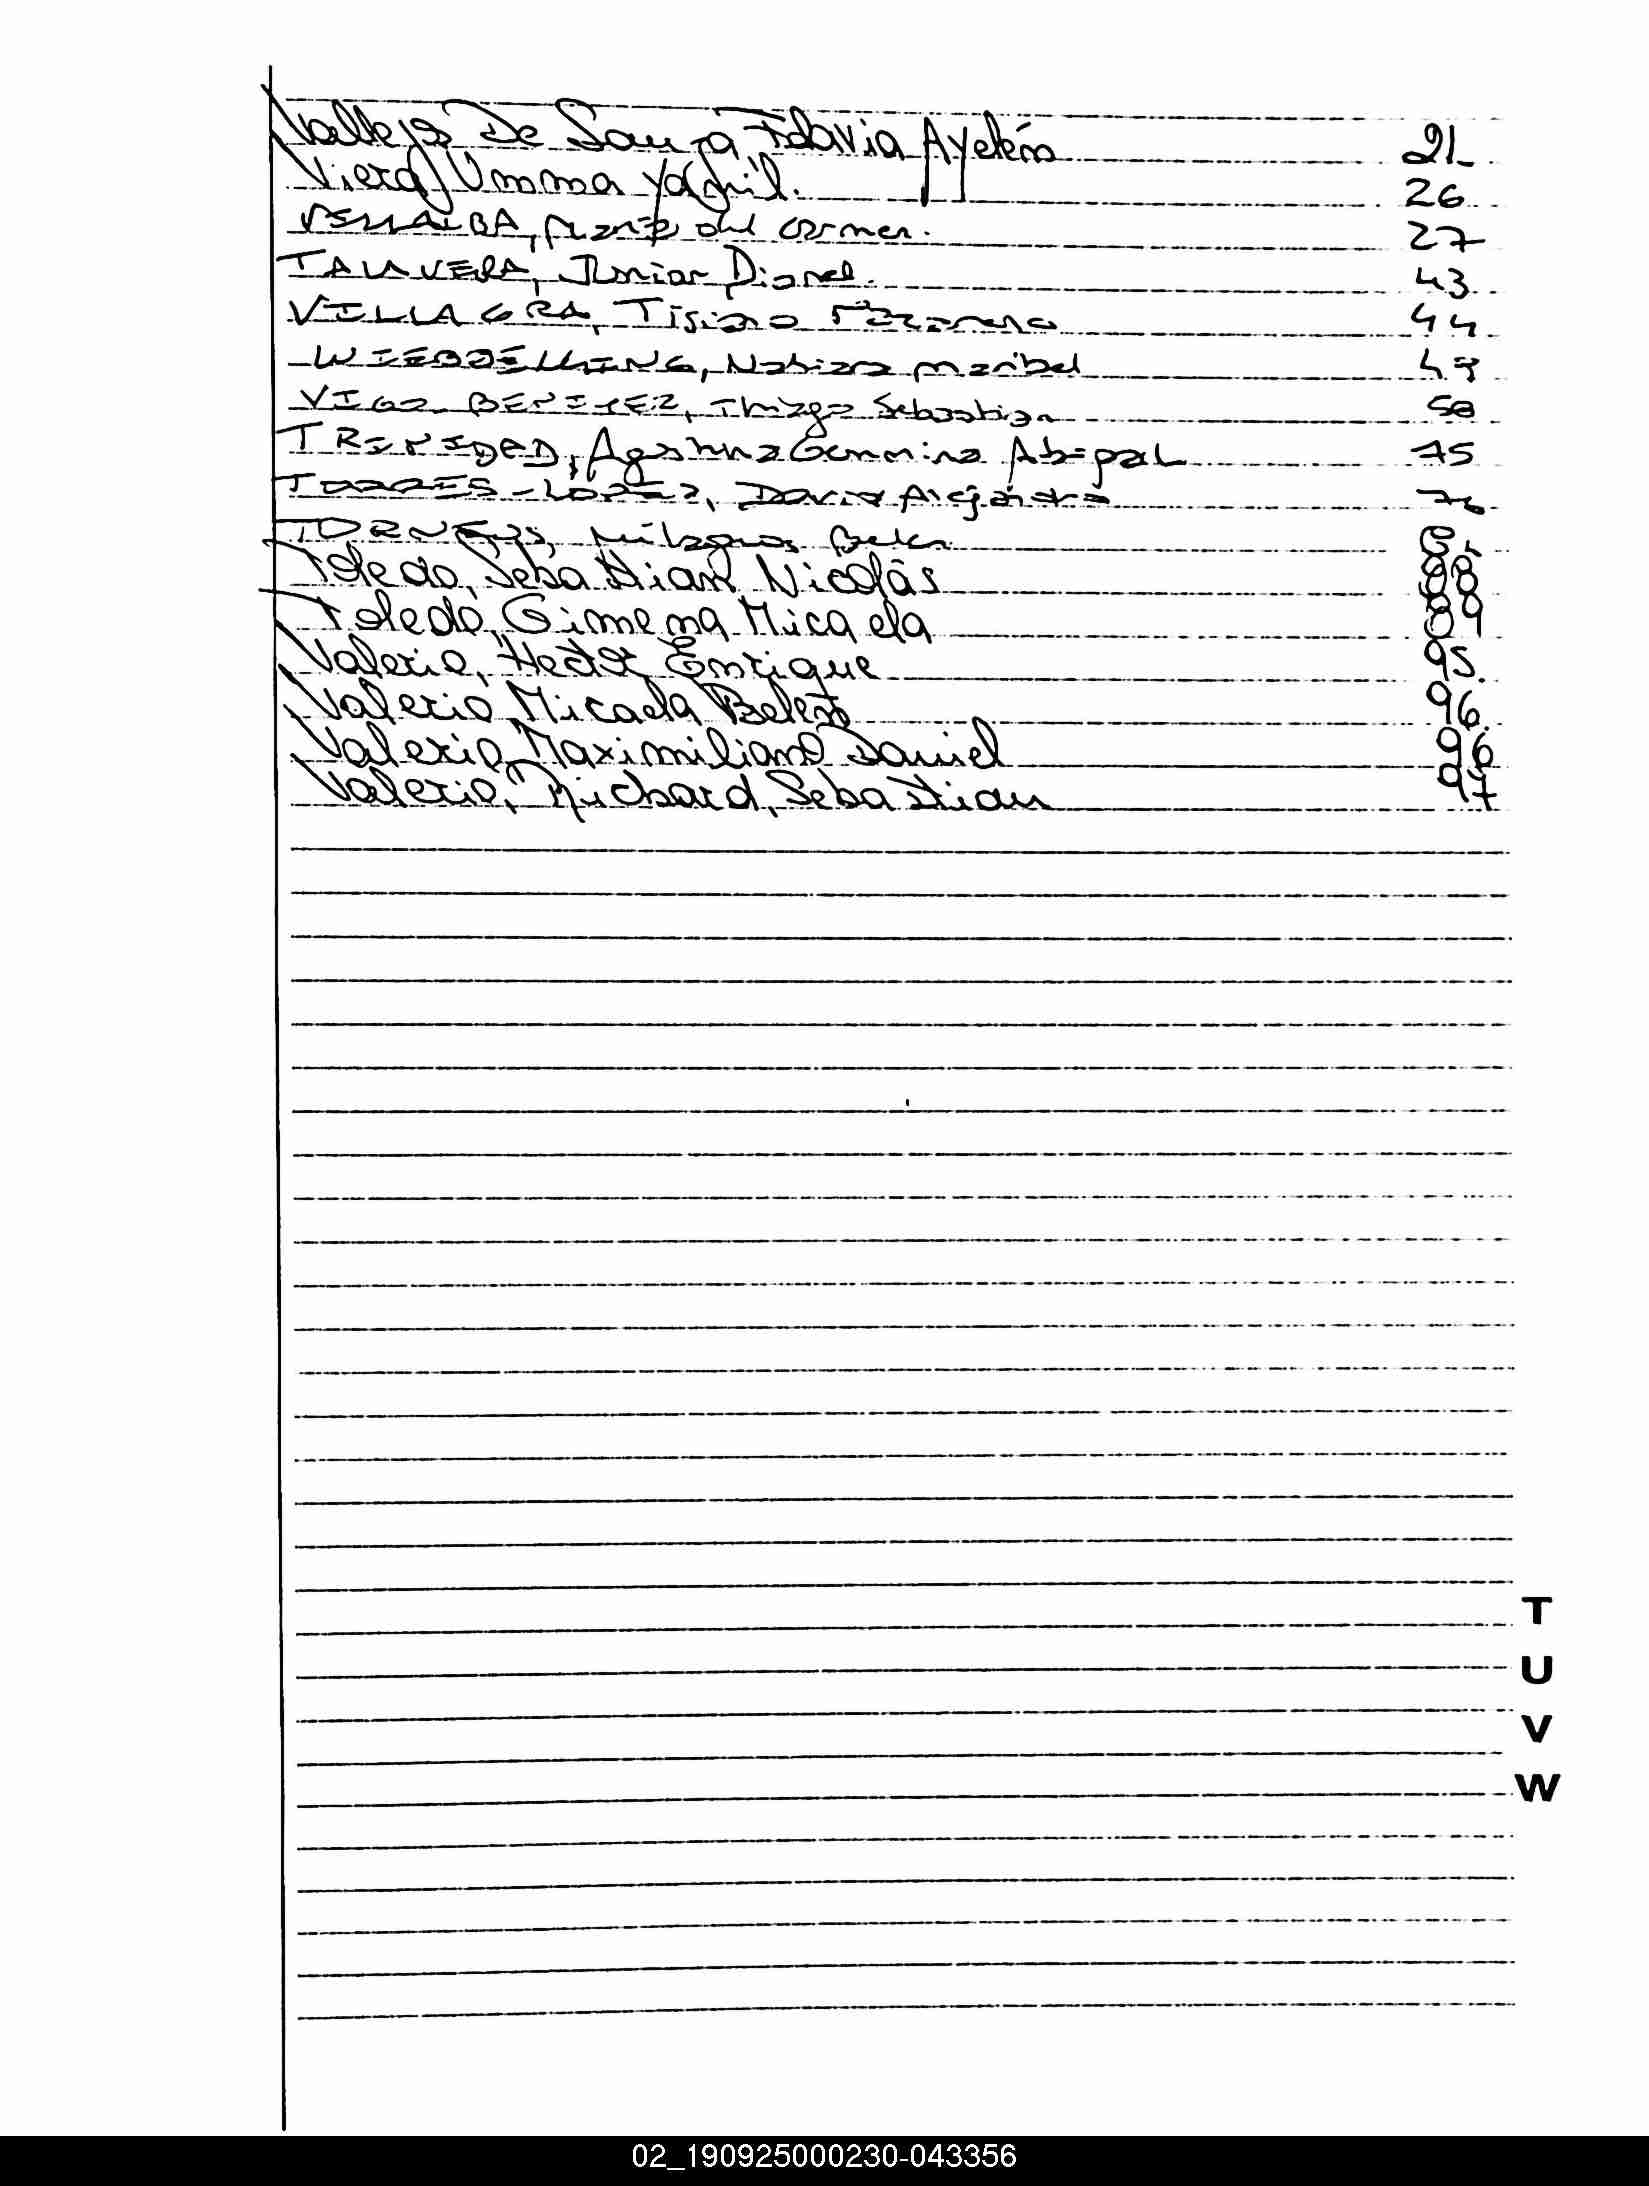 Vallejos De Souza Flavia Ayelén 21
Viera, Umma Yasmil. 26
VILLALBA, María del Carmen. 27
TALAVERA, Junior Dionel. 43
VILLAGRA, Tisiano 44
Maribel 47
VIGO BENITEZ, Thiago Sebastian 58
TRINIDAD, Agostina Gemmina Abigail 75
TORRES LOPEZ, David Alejandro 76
Milagros Belen
Toledo, Sebastian Nicolás 88
Toledo, Gimena Micaela 89
Valerio, Hector Enrique 95.
Valerio, Micaela Belen 96.
Valerio, Maximiliano Daniel 96
Valerio, Richard, Sebastian 97
T
U
V
W
02_190925000230-043356